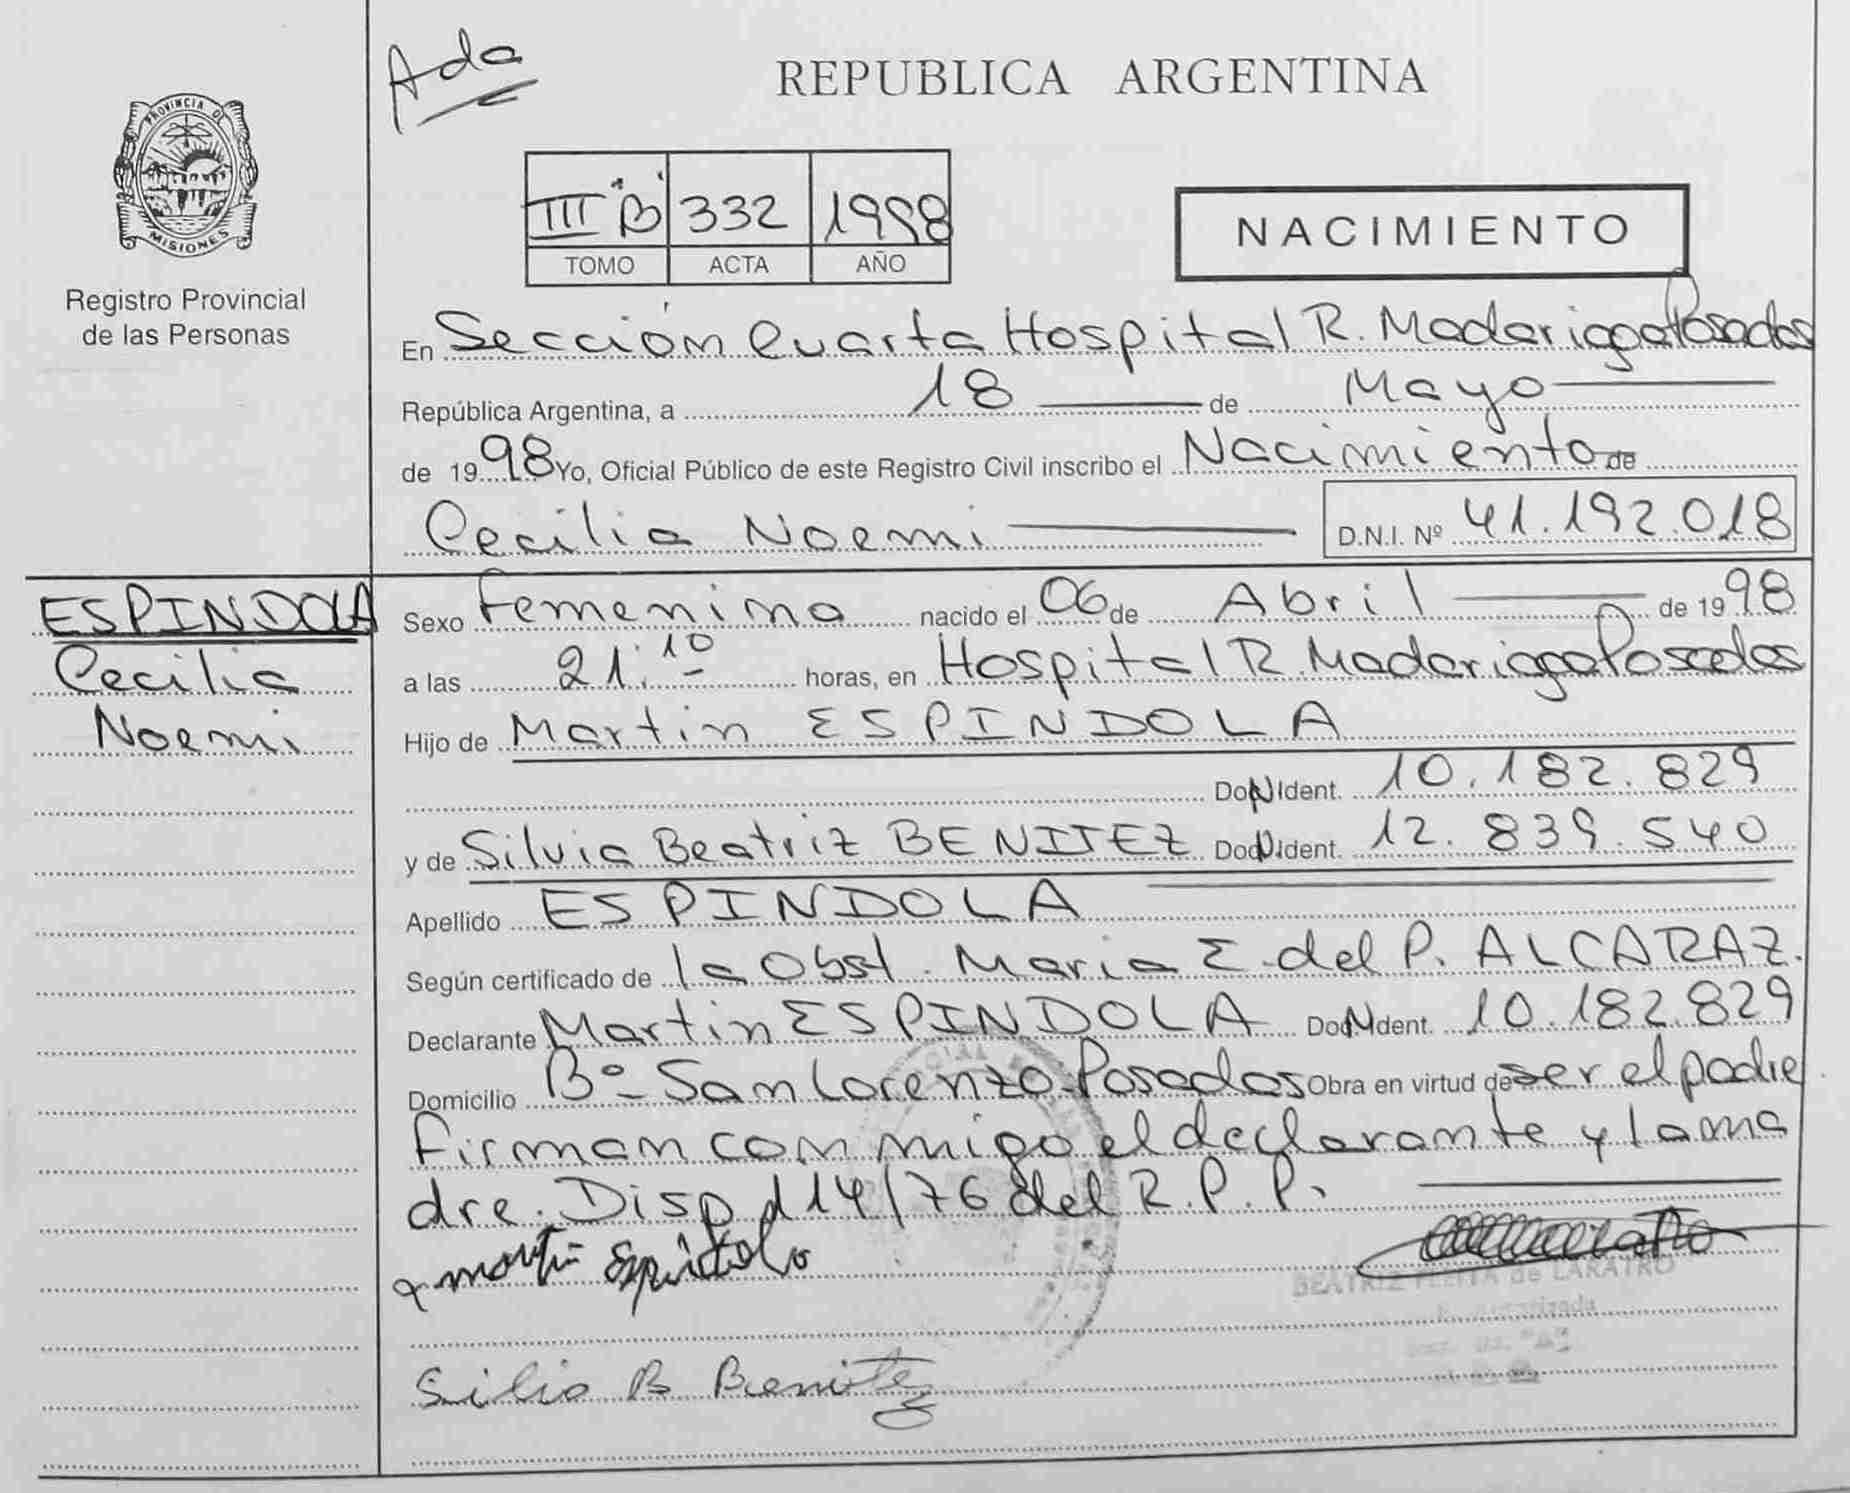 Ada
REPUBLICA ARGENTINA
PROVINCIA DE
MISIONES
Registro Provincial
de las Personas
III "B" 332 1998
TOMO ACTA AÑO
NACIMIENTO
En Sección Cuarta Hospital R. Madariaga Posadas
República Argentina, a 18 de Mayo
de 1998 Yo, Oficial Público de este Registro Civil inscribo el Nacimiento de
Cecilia Noemi D.N.I. Nº 41.192.018
ESPINDOLA
Cecilia
Noemi
Sexo Femenino nacido el 06 de Abril de 1998
a las 21:10 horas, en Hospital R. Madariaga Posadas
Hijo de Martin ESPINDOLA
Ident. 10.182.829
y de Silvia Beatriz BENITEZ Ident. 12.839.540
Apellido ESPINDOLA
Según certificado de la Obst. Maria E. del P. ALCARAZ.
Declarante Martin ESPINDOLA Ident. 10.182.829
Domicilio Bº - San Lorenzo - Posadas Obra en virtud de ser el padre
Firman conmigo el declarante y la ma
dre. Disp 14/76 del R.P.P.
martin Espindola
BEATRIZ de LARATRO
Silvia B Benitez